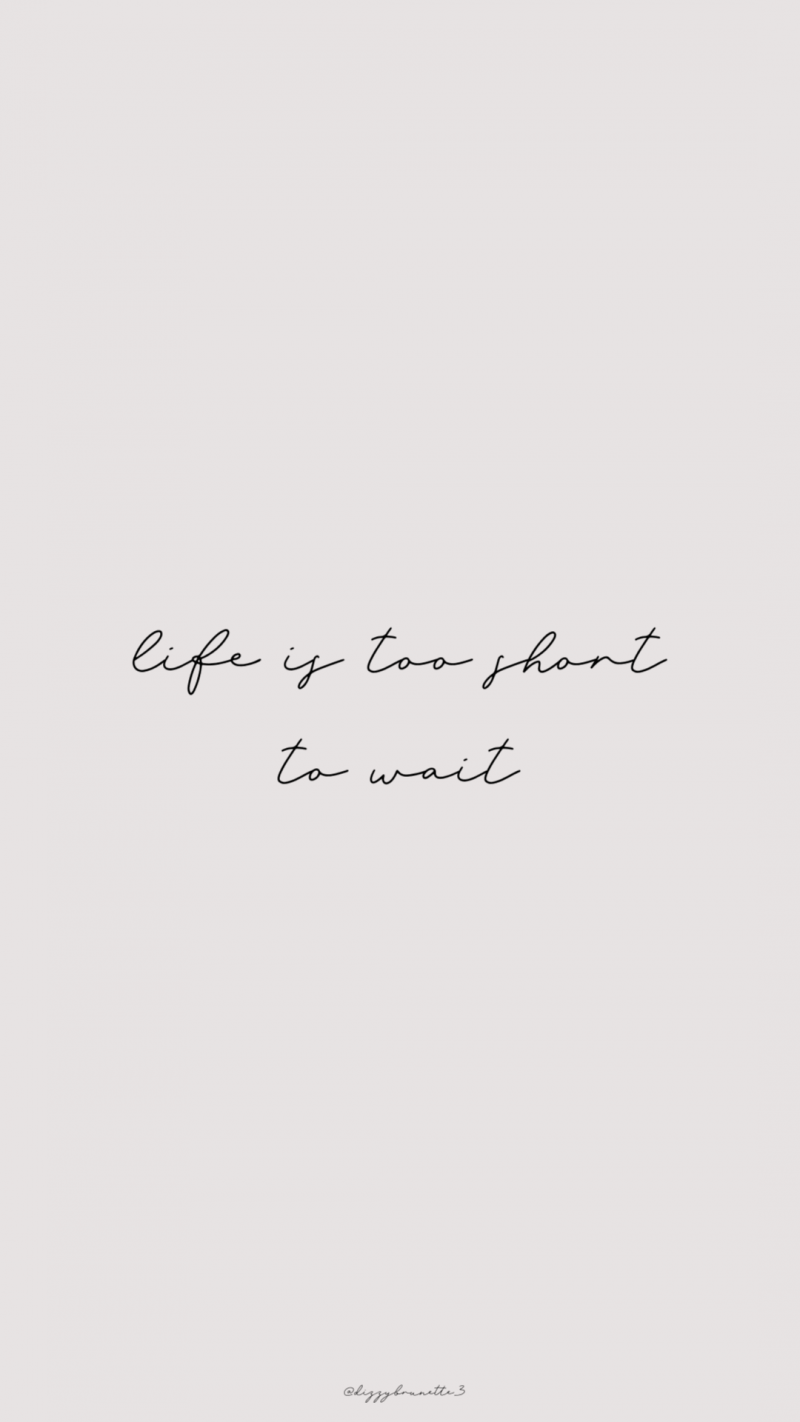 life is too short
to wait
@dizzybrunette3